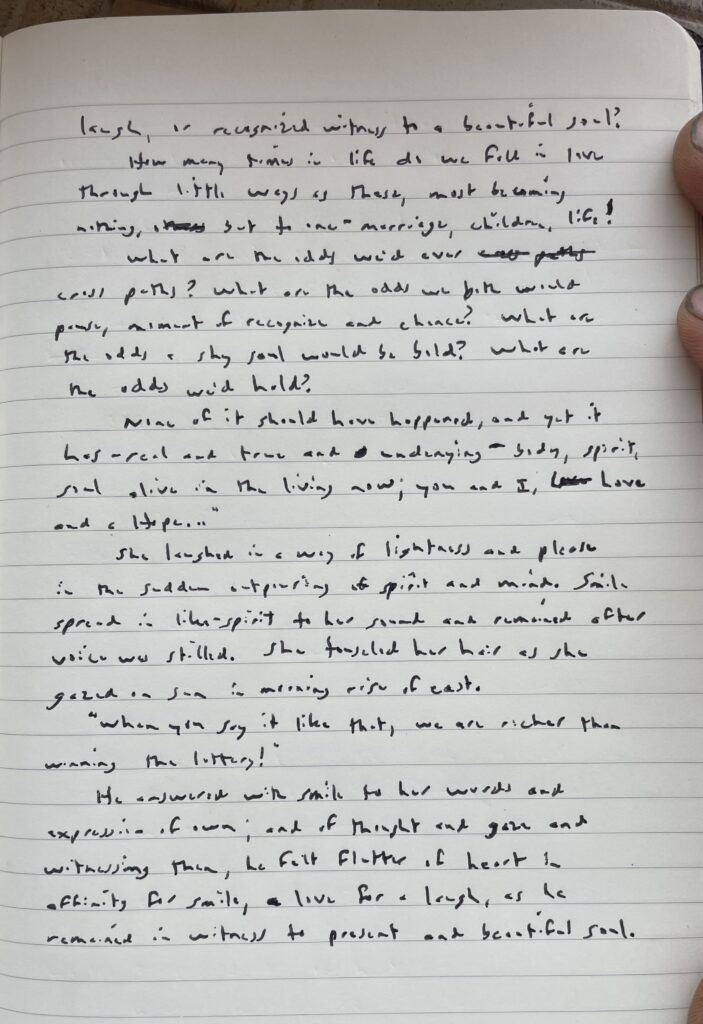 laugh, or recognized witness to a beautiful soul?
How many times in life do we fall in love
through little ways as these, most becoming
nothing, but to one - marriage, children, life!
What are the odds we'd ever
cross paths? What are the odds we both would
pause, moment of recognize and chance? What are
the odds a shy soul would be bold? What are
the odds we'd hold?
None of it should have happened, and yet it
has - real and true and undenying - body, spirit,
soul alive in the living now; you and I, Love
and a Hope..."
She laughed in a way of lightness and please
in the sudden outpouring of spirit and mind. Smile
spread in like-spirit to her sound and remained after
voice was stilled. She touseled her hair as she
gazed on sun in morning rise of east.
"When you say it like that, we are richer than
winning the lottery!"
He answered with smile to her words and
expression of own; and of thought and gaze and
witnessing then, he felt flutter of heart in
affinity for smile, a love for a laugh, as he
remained in witness to present and beautiful soul.